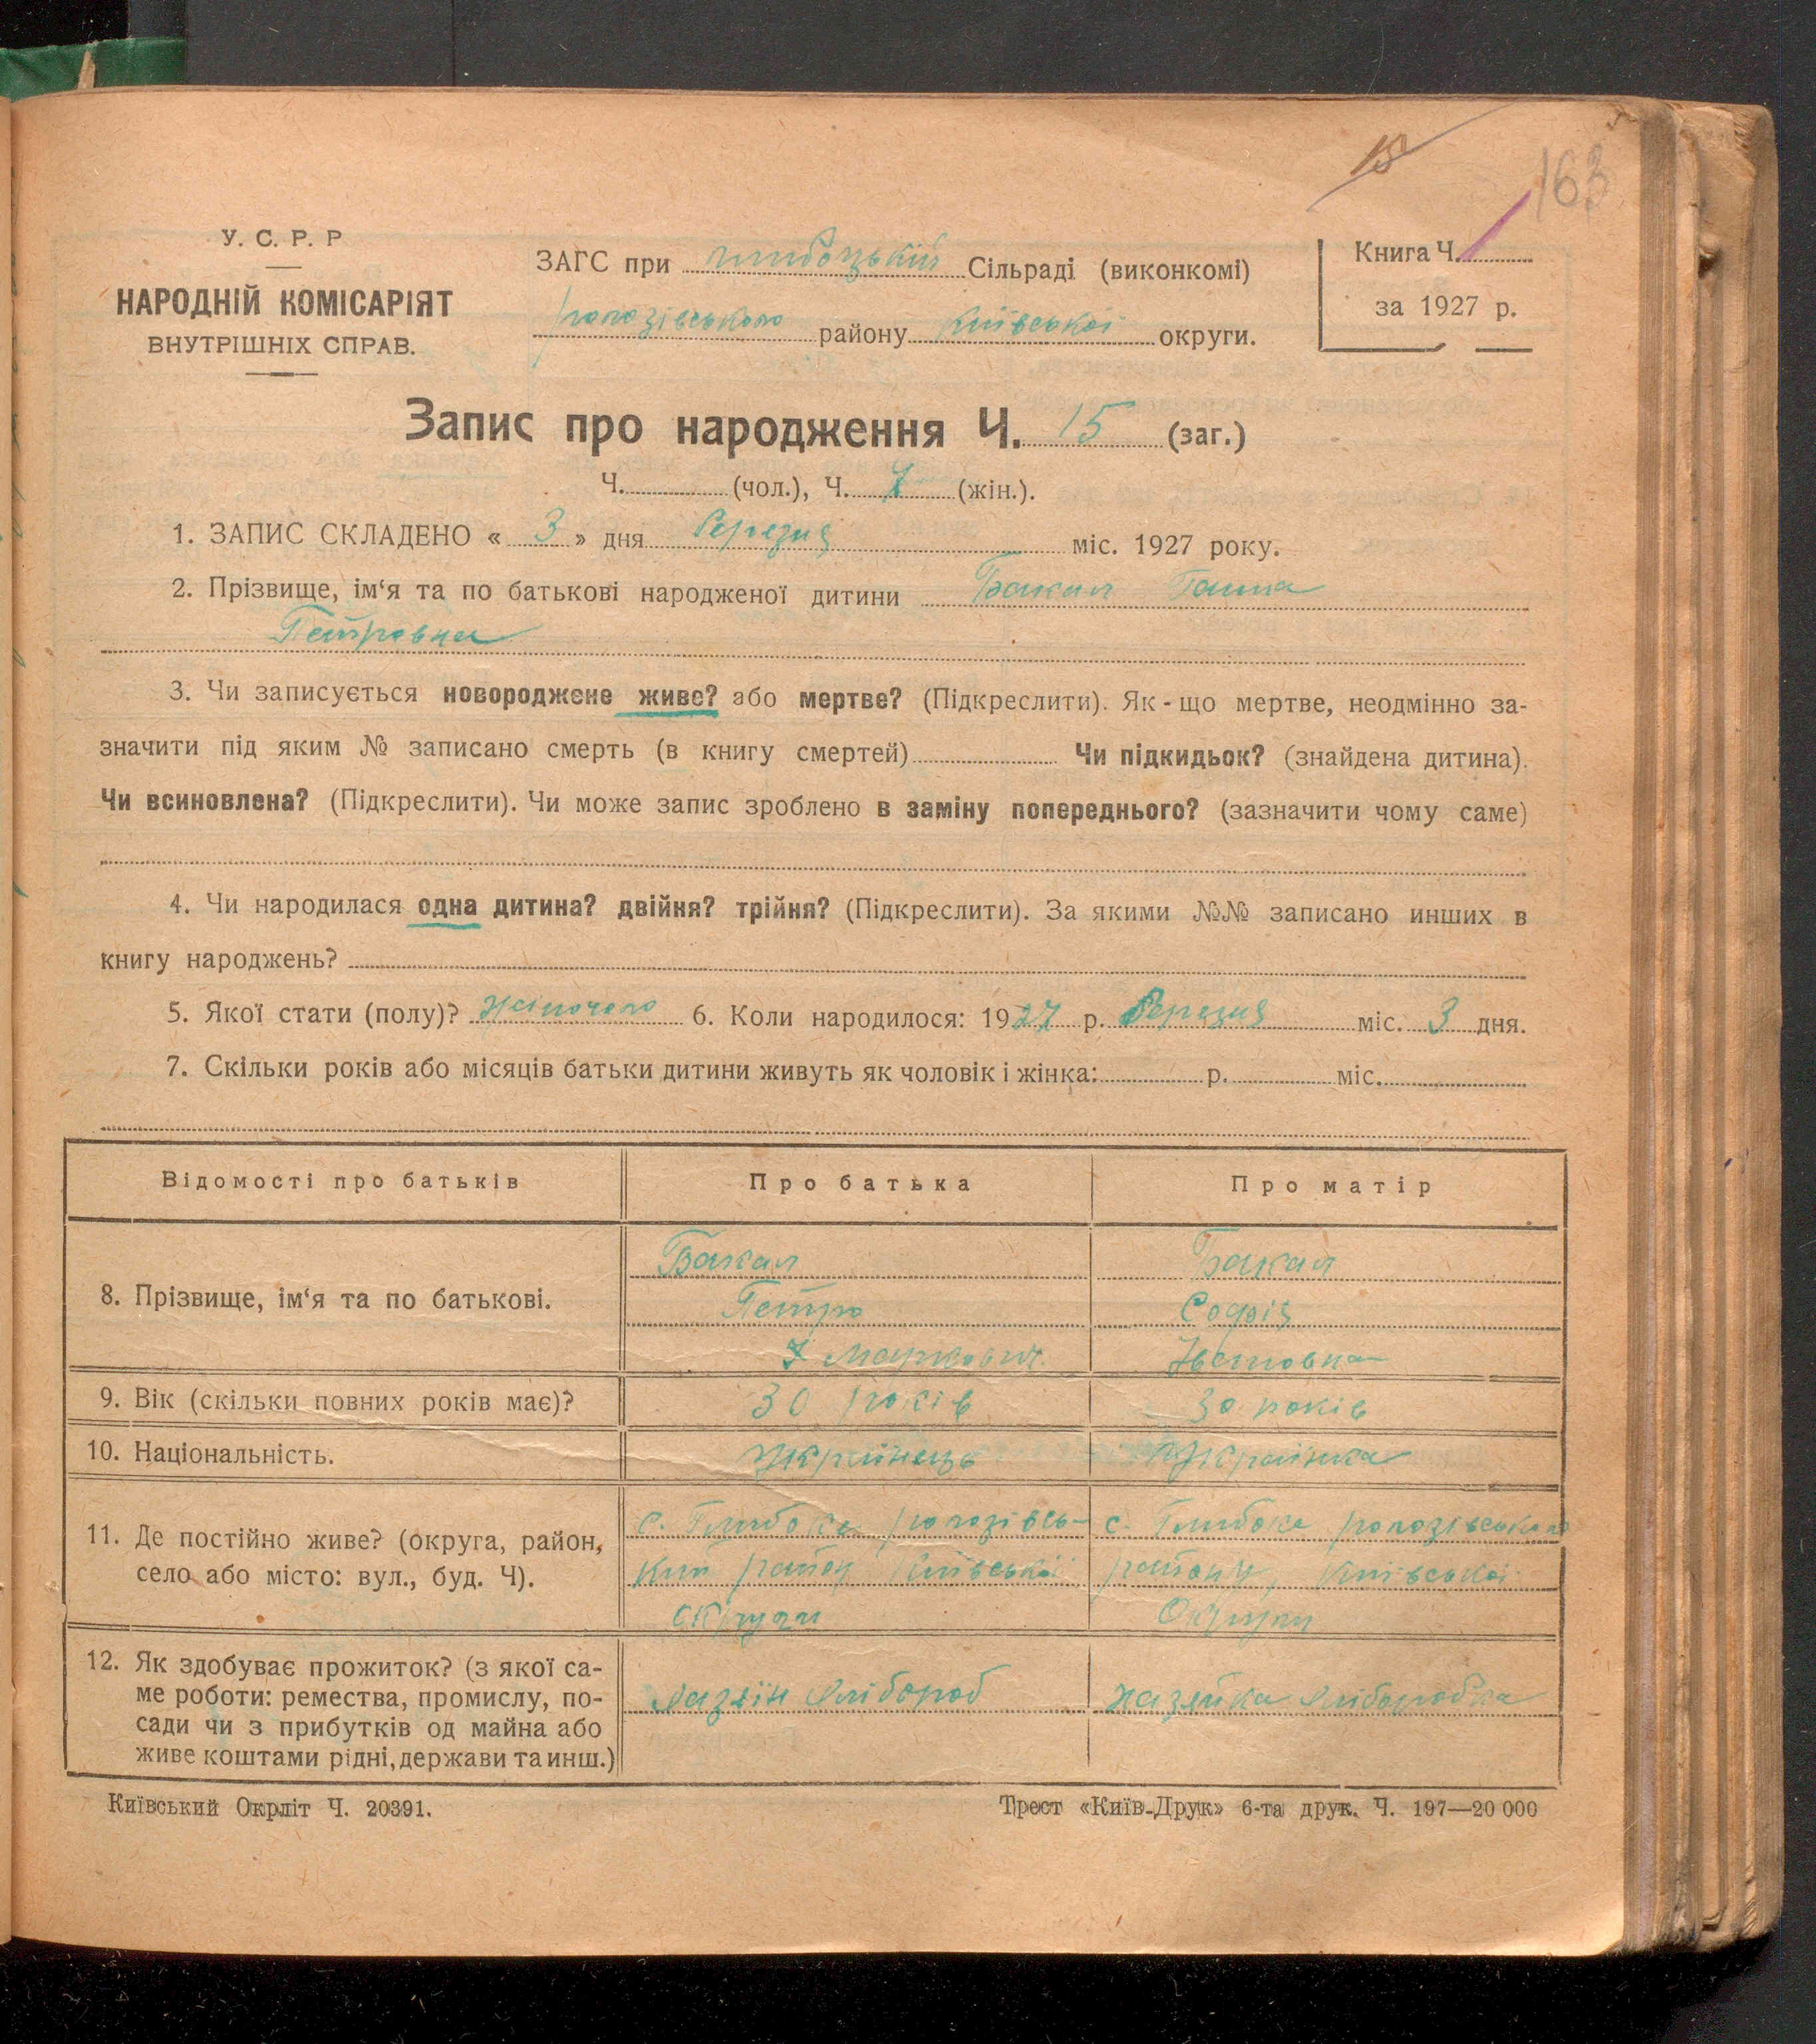 15
163
У. С. Р. Р
НАРОДНІЙ КОМІСАРІЯТ
ВНУТРІШНІХ СПРАВ.
ЗАГС при глибоцькій Сільраді (виконкомі)
рогозівського району Київської округи.
Книга Ч.
за 1927 р.
Запис про народження Ч. 15 (заг.)
Ч. (чол.), Ч. 7 (жін.).
1. ЗАПИС СКЛАДЕНО « 3 » дня Березня міс. 1927 року.
2. Прізвище, ім‘я та по батькові народженої дитини Бакал Ганна
Петровна
3. Чи записується новороджене живе? або мертве? (Підкреслити). Як-що мертве, неодмінно за-
значити під яким № записано смерть (в книгу смертей) Чи підкидьок? (знайдена дитина).
Чи всиновлена? (Підкреслити). Чи може запис зроблено в заміну попереднього? (зазначити чому саме)
4. Чи народилася одна дитина? двійня? трійня? (Підкреслити). За якими №№ записано инших в
книгу народжень?
5. Якої стати (полу)? Жіночого 6. Коли народилося: 1927 р. Березня міс. 3 дня.
7. Скільки років або місяців батьки дитини живуть як чоловік і жінка: р. міс.
Відомості про батьків Про батька Про матір
8. Прізвище, ім‘я та по батькові.
Бакал Бакал
Петро Софія
Маркович Івановна
9. Вік (скільки повних років має)? 30 років 30 років
10. Національність. Українець Українка
11. Де постійно живе? (округа, район, село або місто: вул., буд. Ч).
с. Глибоке рогозівсь- с. Глибоке рогозівського
кий район Київської району, Київської
округи Округи
12. Як здобуває прожиток? (з якої са-
ме роботи: ремества, промислу, по-
сади чи з прибутків од майна або
живе коштами рідні, держави та инш.)
хазяїн хлібороб хазяйка хліборобка
Київський Окрліт Ч. 20391.
Трест «Київ-Друк» 6-та друк. Ч. 197—20 000